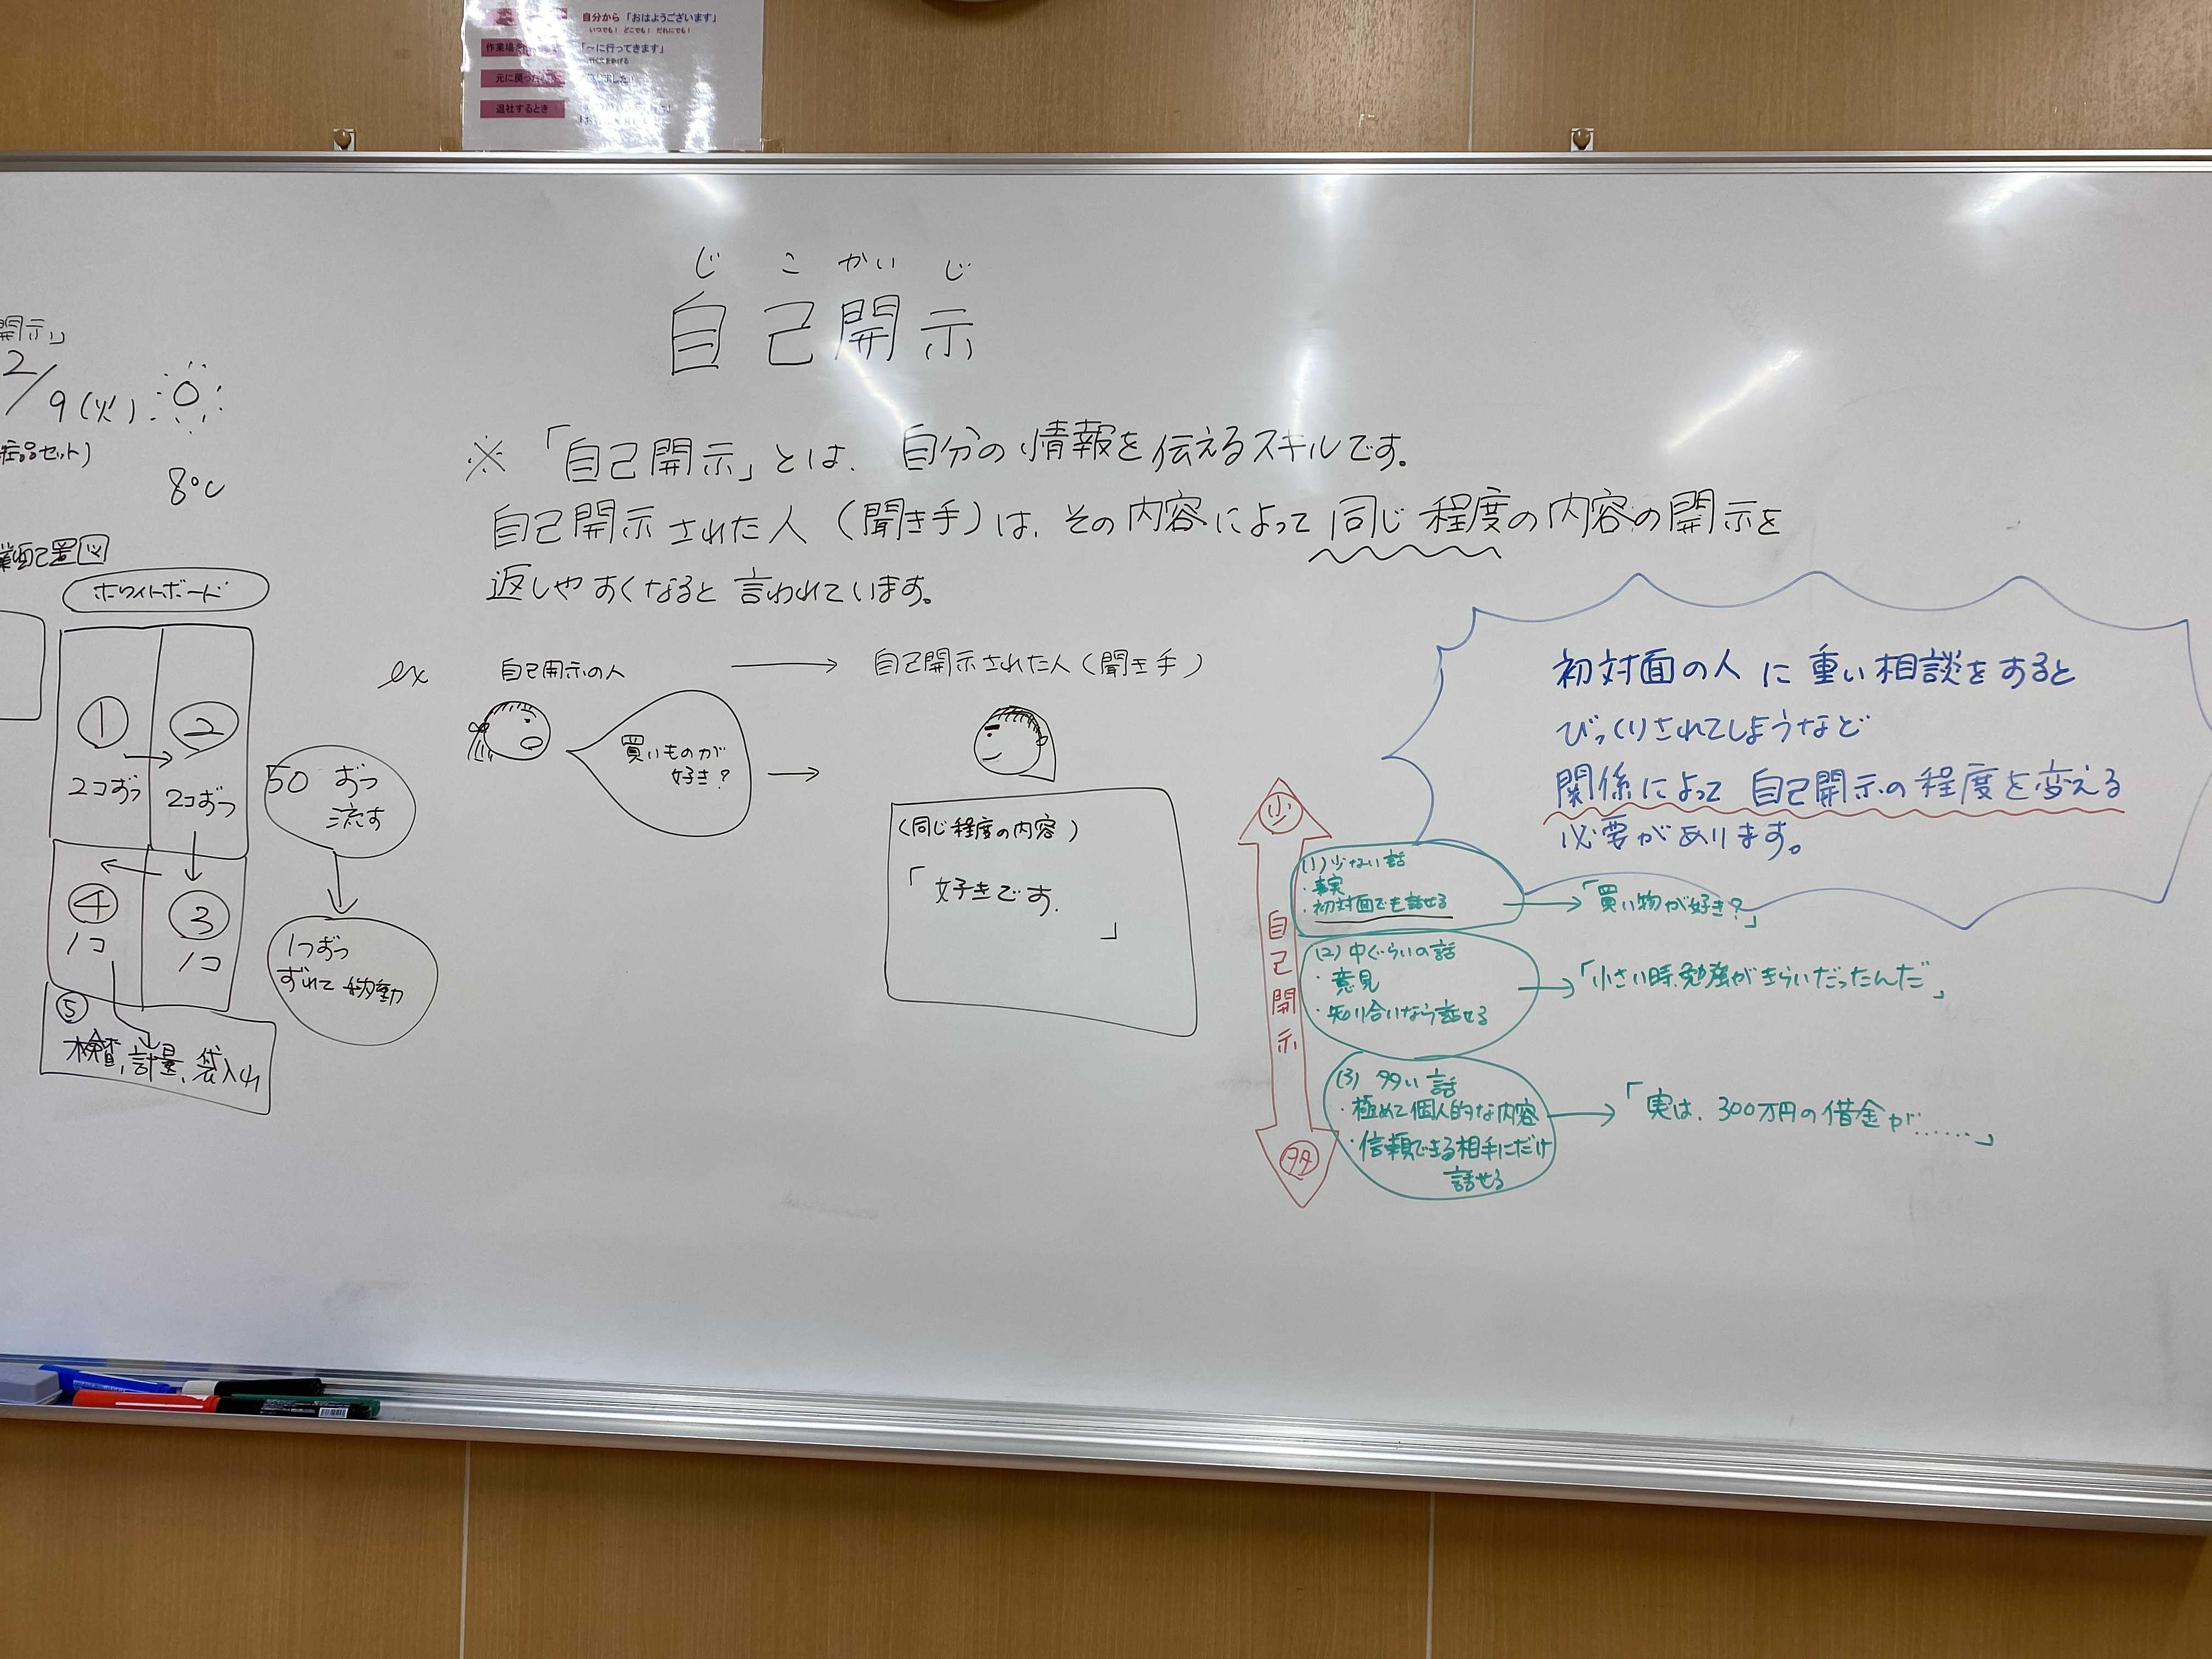 自分から「おはようございます」
いつでも！ どこでも！ だれにでも！
作業場
「～に行ってきます」
元に戻った
退社するとき
じこかいじ
自己開示
開示」
2/9(火)
セット)
8℃
※「自己開示」とは、自分の情報を伝えるスキルです。
自己開示された人（聞き手）は、その内容によって同じ程度の内容の開示を
返しやすくなると言われています。
配置図
ホワイトボード
①
2コずつ
②
2コずつ
④
1コ
③
1コ
⑤
検査、計量、袋入れ
50ずつ
流す
1つずつ
ずれて移動
ex
自己開示の人
自己開示された人（聞き手）
買いものが
好き？
（同じ程度の内容）
「好きです.
」
初対面の人に重い相談をすると
びっくりされてしまうなど
関係によって自己開示の程度を変える
必要があります。
少
自己開示
多
(1)少ない話
・事実
・初対面でも話せる
「買い物が好き？」
(2)中ぐらいの話
・意見
・知り合いなら話せる
「小さい時、勉強がきらいだったんだ」
(3)多い話
・極めて個人的な内容
・信頼できる相手にだけ
話せる
「実は、300万円の借金が......」